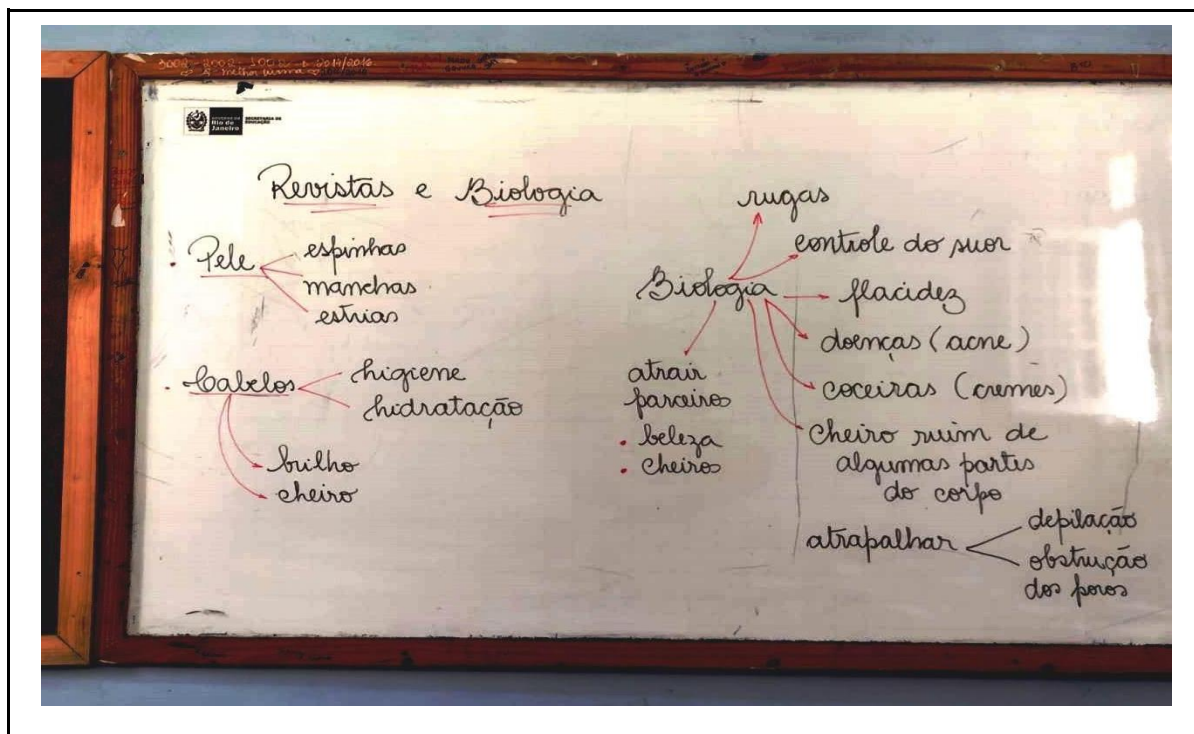 Rio de
Janeiro
SECRETARIA DE
EDUCAÇÃO
Revistas e Biologia
Pele
espinhas
manchas
estrias
Cabelos
higiene
hidratação
brilho
cheiro
Biologia
rugas
controle do suor
flacidez
doenças (acne)
coceiras (cremes)
cheiro ruim de
algumas partes
do corpo
atrair
parceiros
• beleza
• cheiros
atrapalhar
depilação
obstrução
dos poros